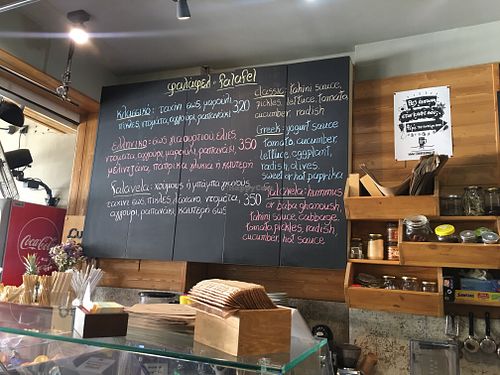 φαλάφελ - falafel
κλασσικό: ταχίνι σως, μαρούλι,
πίκλες, ντομάτα, αγγούρι, ραπανάκι 320
ελληνικό: σως γιαουρτιού ελιές
ντομάτα, αγγούρι, μαρούλι, ραπανάκι, 350
μελιτζάνα, πάπρικα γλυκιά ή καυτερή
Falavela: χούμους ή μπάμπα γκανούς
ταχίνι σως, πίκλες, λάχανο, ντομάτα, 350
αγγούρι, ραπανάκι, καυτερή σως
classic: tahini sauce,
pickles, lettuce, tomato,
cucumber, radish
Greek: yogurt sauce
tomato, cucumber,
lettuce, eggplant,
radish, olives,
sweet or hot paprika
Falavela: hummus
or baba ghanoush,
tahini sauce, cabbage,
tomato, pickles, radish,
cucumber, hot sauce
Coca-Cola